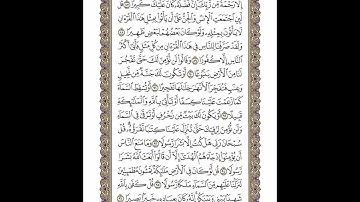 إِلَّا رَحْمَةً مِّن رَّبِّكَ إِنَّ فَضْلَهُۥ كَانَ عَلَيْكَ كَبِيرًا ۝٨٧ قُل
لَّئِنِ ٱجْتَمَعَتِ ٱلْإِنسُ وَٱلْجِنُّ عَلَىٰٓ أَن يَأْتُوا۟ بِمِثْلِ هَٰذَا ٱلْقُرْءَانِ
لَا يَأْتُونَ بِمِثْلِهِۦ وَلَوْ كَانَ بَعْضُهُمْ لِبَعْضٍ ظَهِيرًا ۝٨٨
وَلَقَدْ صَرَّفْنَا لِلنَّاسِ فِى هَٰذَا ٱلْقُرْءَانِ مِن كُلِّ مَثَلٍ فَأَبَىٰٓ أَكْثَرُ
ٱلنَّاسِ إِلَّا كُفُورًا ۝٨٩ وَقَالُوا۟ لَن نُّؤْمِنَ لَكَ حَتَّىٰ تَفْجُرَ
لَنَا مِنَ ٱلْأَرْضِ يَنۢبُوعًا ۝٩٠ أَوْ تَكُونَ لَكَ جَنَّةٌ مِّن نَّخِيلٍ
وَعِنَبٍ فَتُفَجِّرَ ٱلْأَنْهَٰرَ خِلَٰلَهَا تَفْجِيرًا ۝٩١ أَوْ تُسْقِطَ ٱلسَّمَآءَ
كَمَا زَعَمْتَ عَلَيْنَا كِسَفًا أَوْ تَأْتِىَ بِٱللَّهِ وَٱلْمَلَٰٓئِكَةِ
قَبِيلًا ۝٩٢ أَوْ يَكُونَ لَكَ بَيْتٌ مِّن زُخْرُفٍ أَوْ تَرْقَىٰ فِى ٱلسَّمَآءِ
وَلَن نُّؤْمِنَ لِرُقِيِّكَ حَتَّىٰ تُنَزِّلَ عَلَيْنَا كِتَٰبًا نَّقْرَؤُهُۥ قُلْ
سُبْحَانَ رَبِّى هَلْ كُنتُ إِلَّا بَشَرًا رَّسُولًا ۝٩٣ وَمَا مَنَعَ ٱلنَّاسَ
أَن يُؤْمِنُوٓا۟ إِذْ جَآءَهُمُ ٱلْهُدَىٰٓ إِلَّآ أَن قَالُوٓا۟ أَبَعَثَ ٱللَّهُ بَشَرًا
رَّسُولًا ۝٩٤ قُل لَّوْ كَانَ فِى ٱلْأَرْضِ مَلَٰٓئِكَةٌ يَمْشُونَ مُطْمَئِنِّينَ
لَنَزَّلْنَا عَلَيْهِم مِّنَ ٱلسَّمَآءِ مَلَكًا رَّسُولًا ۝٩٥ قُلْ كَفَىٰ بِٱللَّهِ
شَهِيدًۢا بَيْنِى وَبَيْنَكُمْ إِنَّهُۥ كَانَ بِعِبَادِهِۦ خَبِيرًۢا بَصِيرًا ۝٩٦